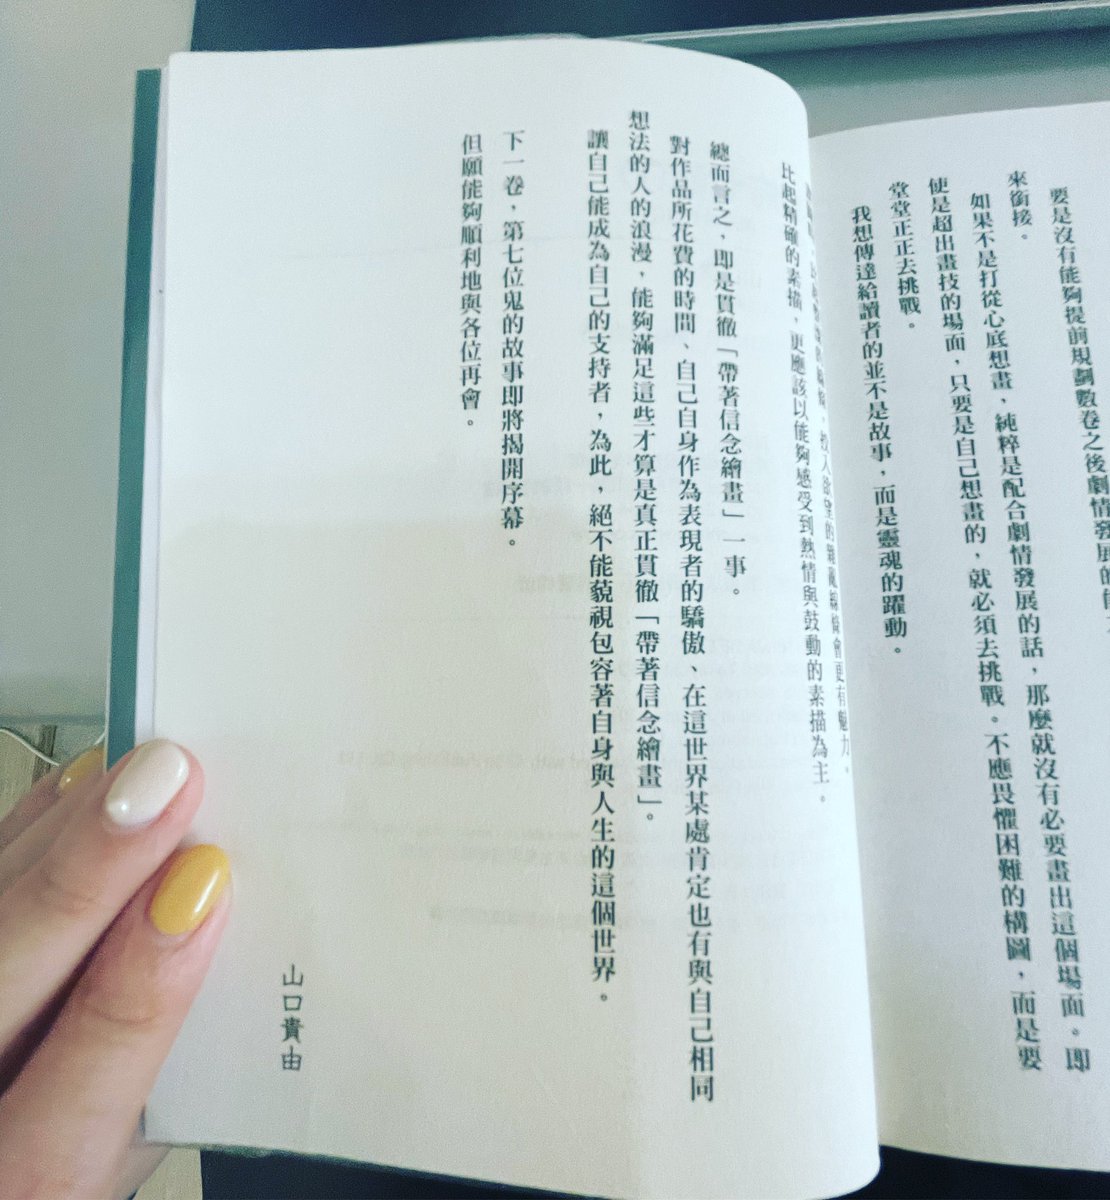 要是沒有能夠提前規劃數卷之後劇情發展的
來銜接。
如果不是打從心底想畫，純粹是配合劇情發展的話，那麼就沒有必要畫出這個場面。即
使是超出畫技的場面，只要是自己想畫的，就必須去挑戰。不應畏懼困難的構圖，而是要
堂堂正正去挑戰。
我想傳達給讀者的並不是故事，而是靈魂的躍動。
投入欲望的雜亂線條會更有魅力。
比起精確的素描，更應該以能夠感受到熱情與鼓動的素描為主。
總而言之，即是貫徹「帶著信念繪畫」一事。
對作品所花費的時間、自己自身作為表現者的驕傲、在這世界某處肯定也有與自己相同
想法的人的浪漫，能夠滿足這些才算是真正貫徹「帶著信念繪畫」。
讓自己能成為自己的支持者，為此，絕不能藐視包容著自身與人生的這個世界。
下一卷，第七位鬼的故事即將揭開序幕。
但願能夠順利地與各位再會。
山口貴由